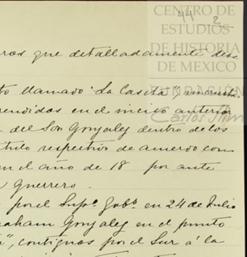 44 2
CENTRO DE
ESTUDIOS
DE HISTORIA
DE MEXICO
CARSO
eros que detalladamente des
to llamado "La Caseta"
rendidas en el inciso anterior
del Sor Gonzalez dentro de los
título respectivo de acuerdo con
en el año de 18 por ante
Guerrero.
por el Supo. Gobo. en 24 de Julio
raham Gonzalez en el punto
contiguos por el Sur á la